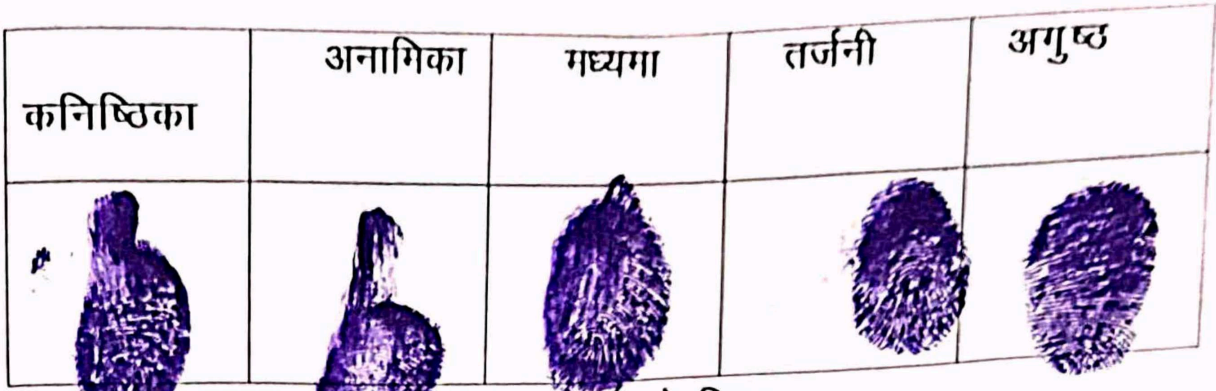 कनिष्ठिका अनामिका मध्यमा तर्जनी अगुष्ठ